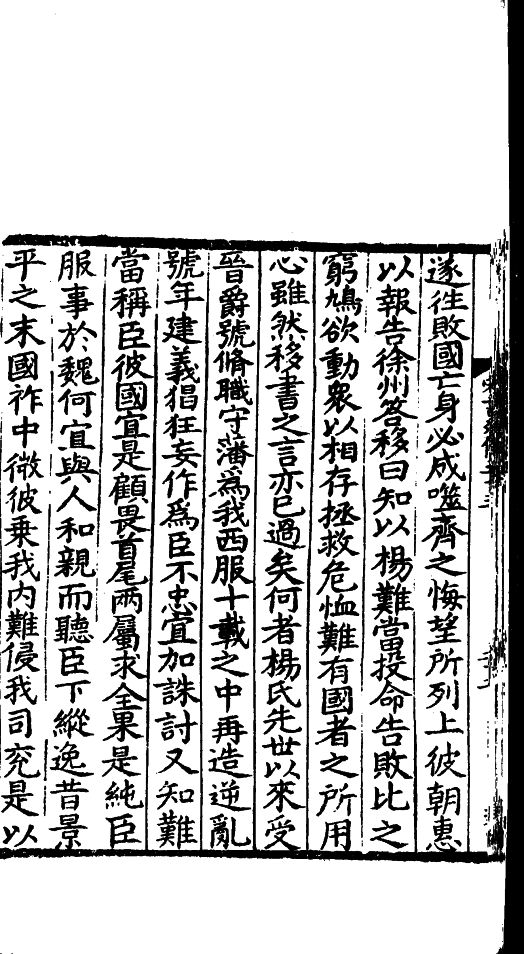 遂往敗國亡身必成噬齊之悔望所列上彼朝惠
以報告徐州答移曰知以楊難當投命告敗比之
窮鳩欲動衆以相存拯救危恤難有國者之所用
心雖然移書之言亦已過矣何者楊氏先世以來受
晉爵號脩職守藩爲我西服十載之中再造逆亂
號年建義猖狂妄作爲臣不忠宜加誅討又知難
當稱臣彼國宜是顧畏首尾兩屬求全果是純臣
服事於魏何宜與人和親而聽臣下縱逸昔景
平之末國祚中微彼乗我内難侵我司兖是以